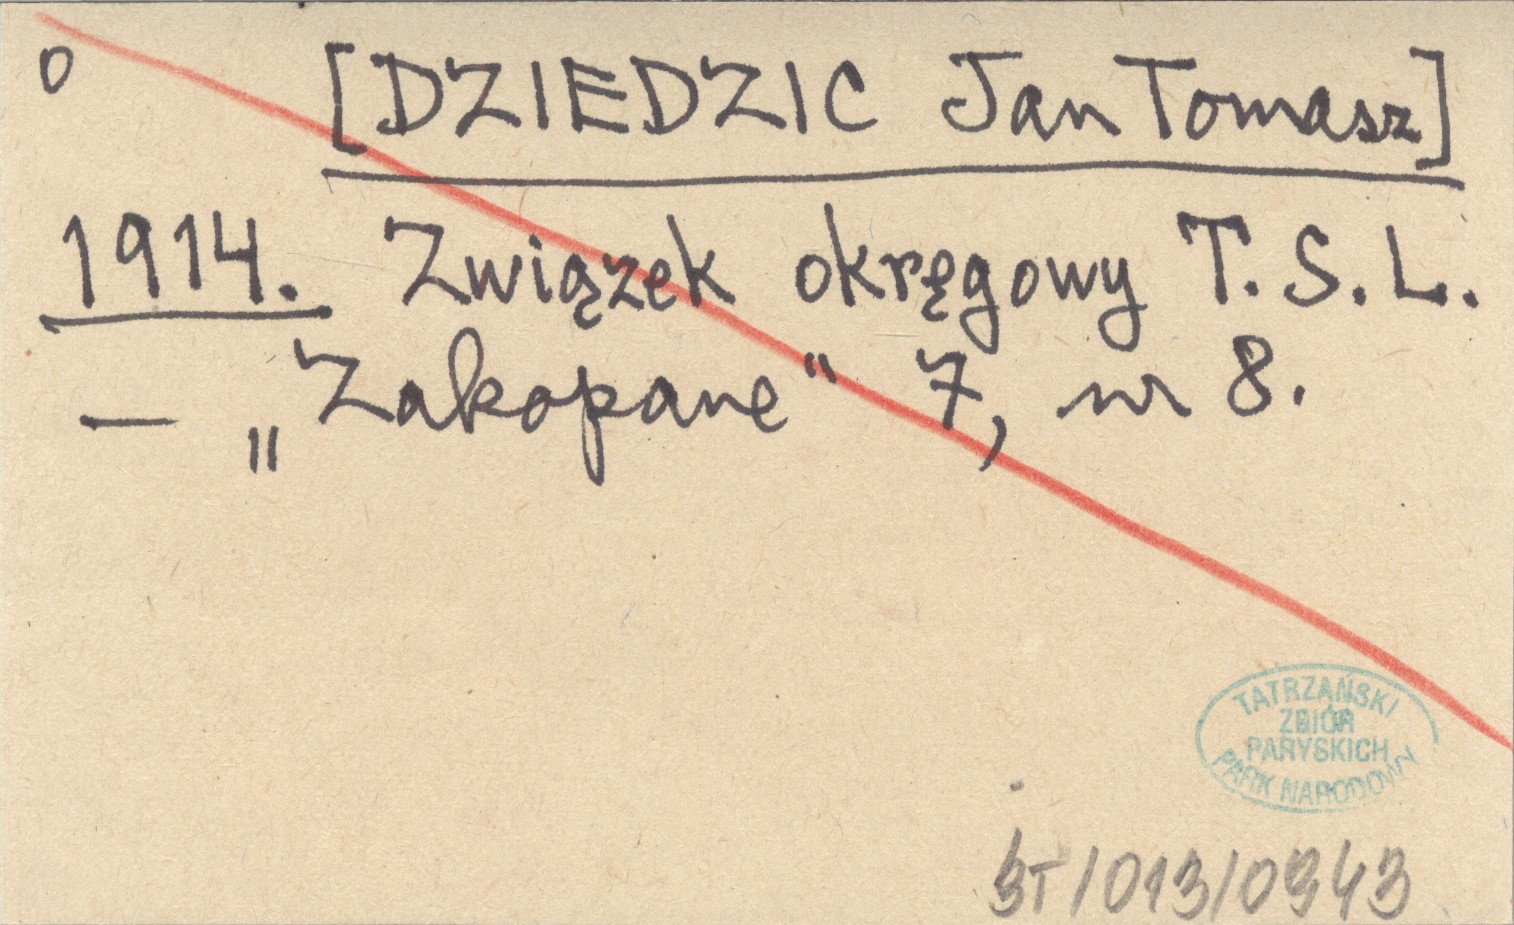 o [DZIEDZIC Jan Tomasz]
1914. Związek okręgowy T.S.L.
— „Zakopane“ 7, nr 8.
TATRZAŃSKI
ZBIÓR
PARYSKICH
PARK NARODOWY
BT/013/0943